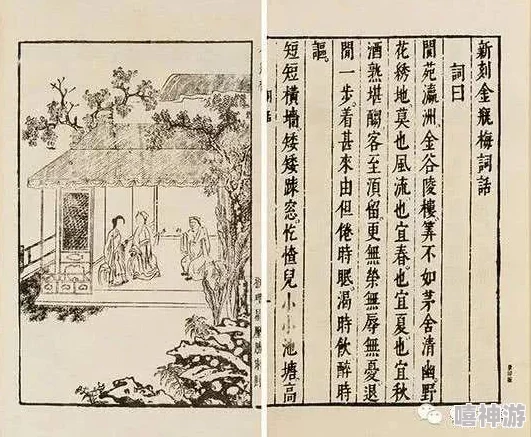 新刻金瓶梅詞話
詞曰
閬苑瀛洲。金谷陵樓。筭不如茅舍清幽。野
花綉地。莫也風流。也宜春。也宜夏。也宜秋
酒熟堪酹。客至湏留。更無榮無辱無憂。退
閒一步。着甚來由。但倦時眠。渴時飲。醉時
謳。
短短橫墻。矮矮踈窓。忔兒小小池塘。高
嘻神游